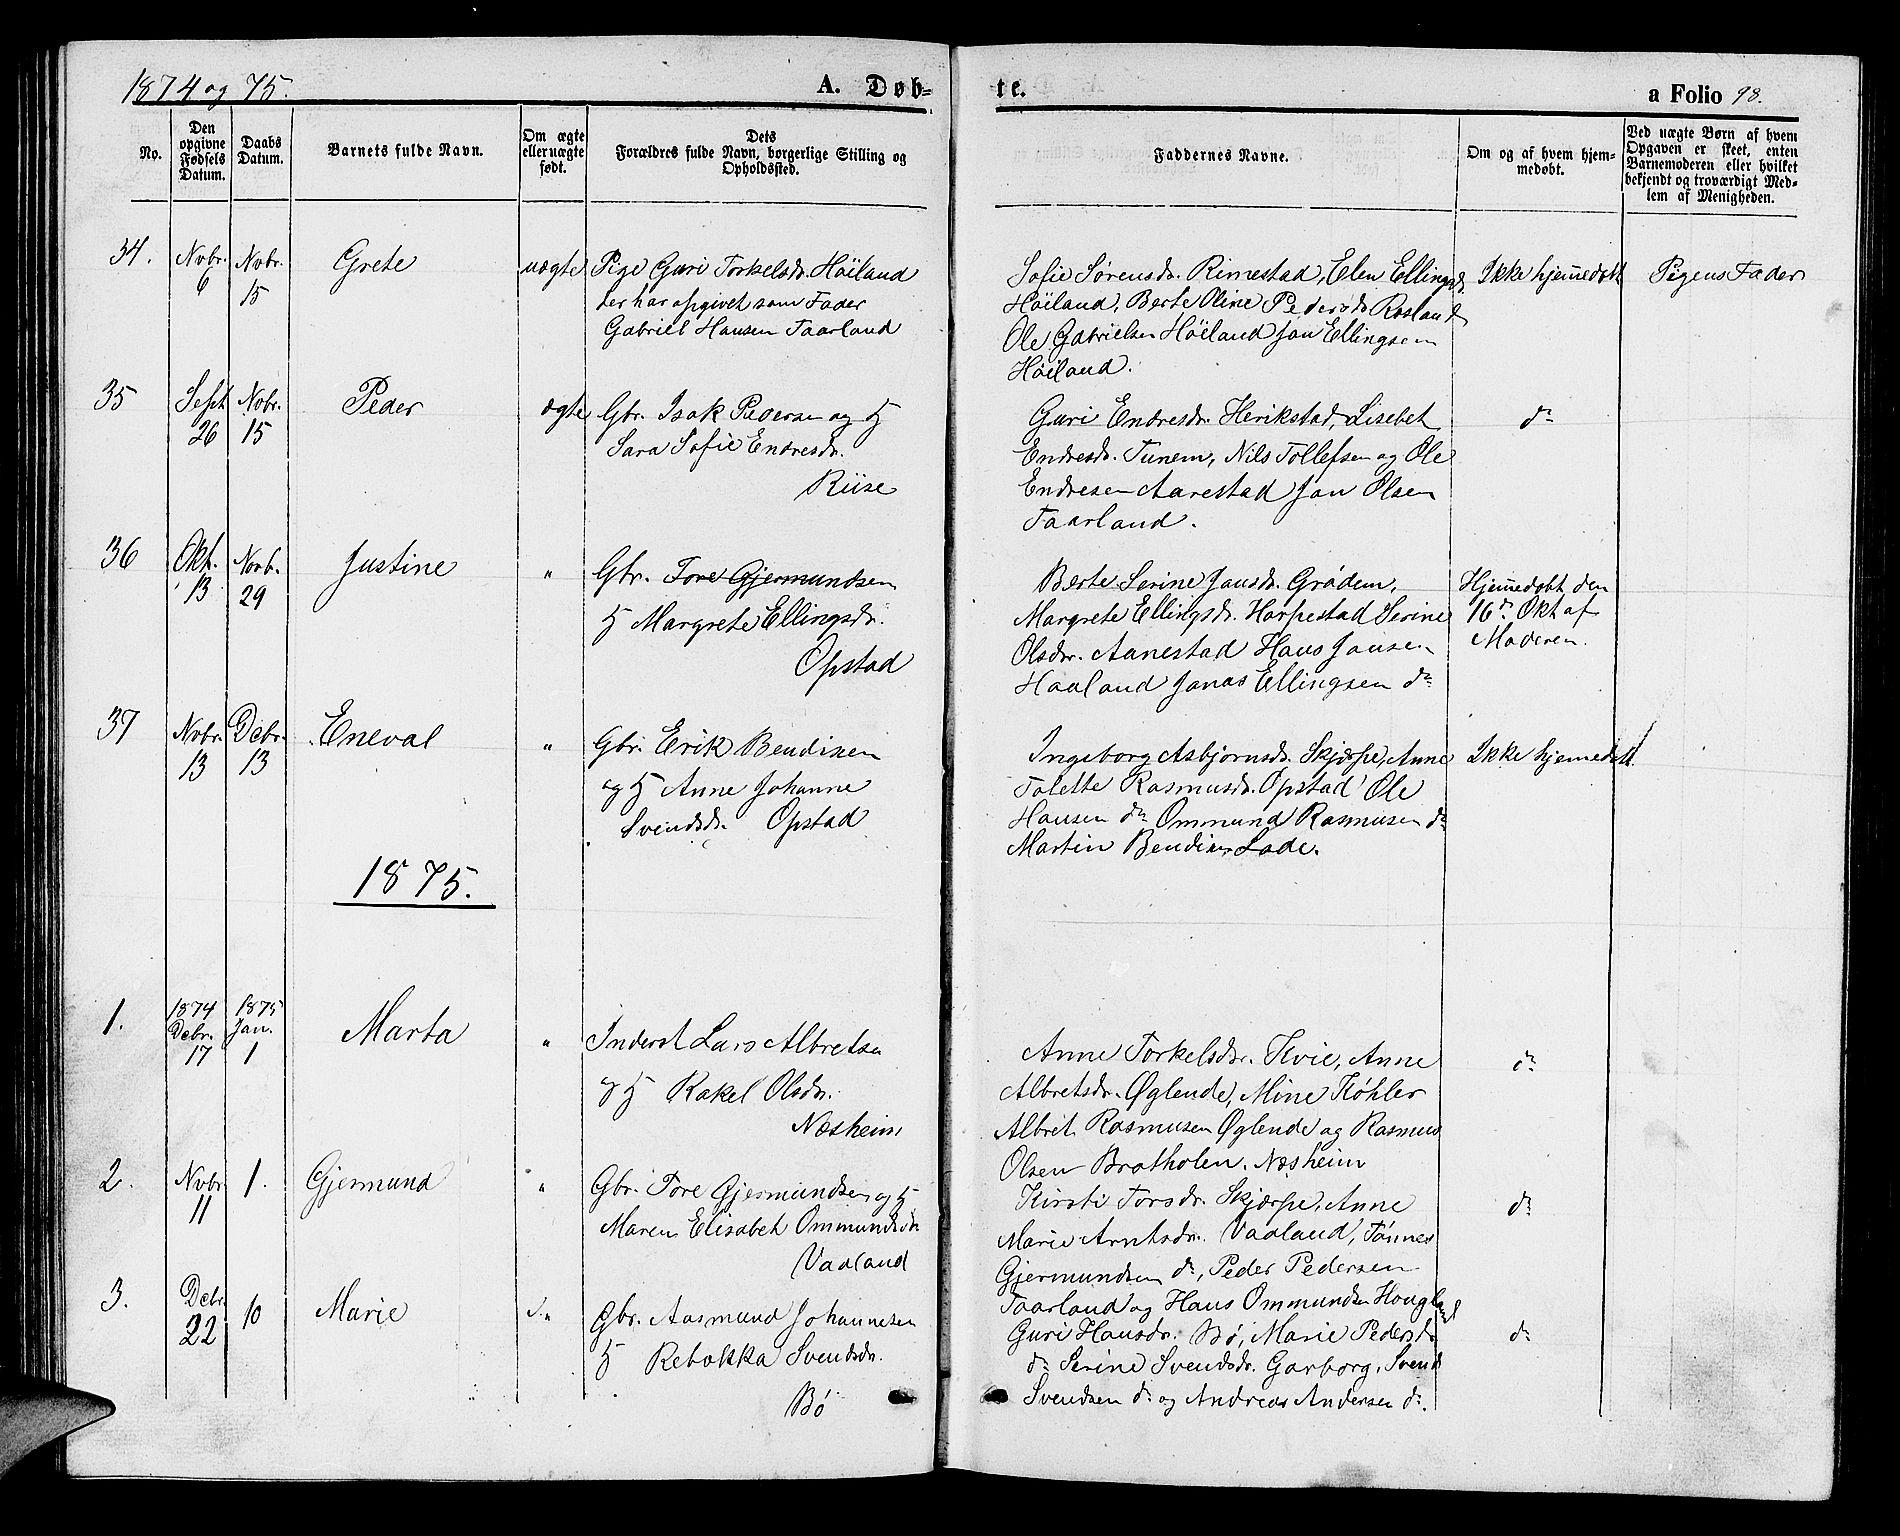 1874 og 75.
A. Døb-
te.
a Folio 98.
No.
Den opgivne Fødsels Datum.
Daabs Datum.
Barnets fulde Navn.
Om ægte eller uægte født.
Dets Forældres fulde Navn, borgerlige Stilling og Opholdssted.
Faddernes Navne.
Om og af hvem hjemmedøbt.
Ved uægte Børn af hvem Opgaven er skeet, enten Barnemoderen eller hvilket bekjendt og troværdigt Medlem af Menigheden.
34.
Nvbr. 6
Nvbr. 15
Grete
uægte
Pige Guri Torkelsdr. Høiland
der har opgivet som Fader
Gabriel Hansen Taarland
Sofie Sørensdr. Rimestad, Elen Ellingsd.
Høiland, Berte Oline Pedersdr Rosland
Ole Gabrielsen Høiland Jan Ellingsen
Høiland.
Ikke hjemedøbt
Pigens Fader
35
Sept 26
Nvbr. 15
Peder
ægte
Gbr. Isak Pedersen og H
Sara Sofie Endresdr.
Riise
Guri Endresdr. Herikstad, Lisebet
Endresdr. Tunem, Nils Tollefsen og Ole
Endresen Aarestad Jan Olsen
Taarland.
do
36
Okt. 13
Novb. 29
Justine
"
Gbr. Tore Gjermundsen
H Margrete Ellingsdr.
Opstad
Berte Serine Jansdr. Grødem,
Margrete Ellingsdr. Harpestad Serine
Olsdr. Aanestad Hans Jansen
Haaland Janas Ellingsen do
Hjemedøbt den
16de Okt af
Moderen.
37
Nvbr. 13
Debr. 13
Eneval
"
Gbr. Erik Bendixen
og H Anne Johanne
Svendsdr. Opstad
Ingeborg Asbjørnsdr. Skjærpe, Anne
Tolette Rasmusdr. Opstad Ole
Hansen do Ommund Rasmusen do
Martin Bendixen Lode.
Ikke hjemedøbt.
1875.
1.
1874 Debr. 17
1875 Jan. 1
Marta
"
Inderst Lars Albretsen
og H Rakel Olsdr.
Næsheim
Anne Torkelsdr. Kvie, Anne
Albretsdr. Øglende, Mine Køhler
Albret Rasmusen Øglende og Rasmus
Olsen Bratholen. Næsheim
do
2.
Nvbr. 11
1.
Gjermund
"
Gbr. Tore Gjermundsen og H
Maren Elisabet Ommundsdr.
Vaaland
Kirsti Torsdr. Skjærpe, Anne
Marie Arntsdr. Vaaland, Tønnes
Gjermundsen do, Peder Pedersen
Taarland og Hans Ommundsen Hougland
do
3.
Debr. 22
10
Marie
"
Gbr. Aasmund Johannesen
H Rebekka Svendsdr.
Bø
Guri Hansdr. Bø, Marie Pedersdr
do Serine Svendsdr. Garborg, Svend
Svendsen do og Andreas Andersen do.
do